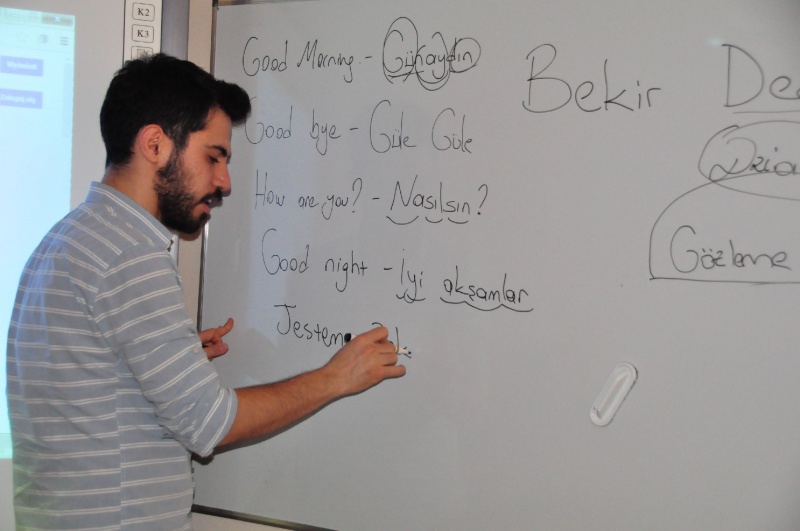 K2
K3
Good Morning - Günaydın
Good bye - Güle Güle
How are you? - Nasılsın?
Good night - İyi akşamlar
Jestem
Bekir
Gözleme